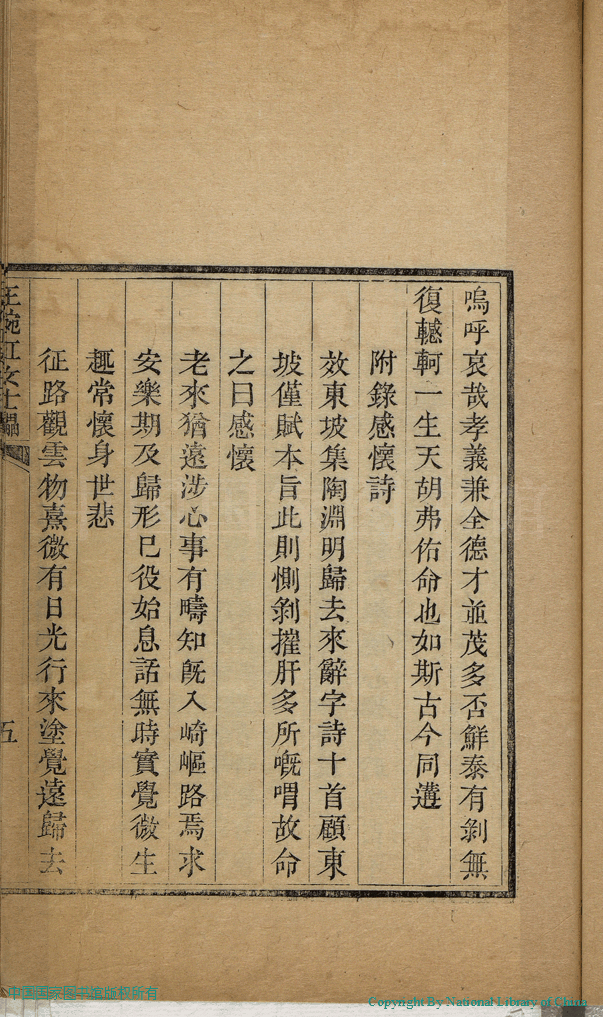 嗚呼哀哉孝義兼全德才並茂多否鮮泰有剝無
復轗軻一生天胡弗佑命也如斯古今同遘
附錄感懷詩
效東坡集陶淵明歸去來辭字詩十首顧東
坡僅賦本旨此則惻剝摧肝多所嘅喟故命
之曰感懷
老來猶遠涉心事有疇知旣入崎嶇路焉求
安樂期及歸形已役始息話無時實覺微生
趣常懷身世悲
征路觀雲物熹微有日光行來塗覺遠歸去
王琬紅女士
五
中国国家图书馆版权所有
Copyright By National Library of China